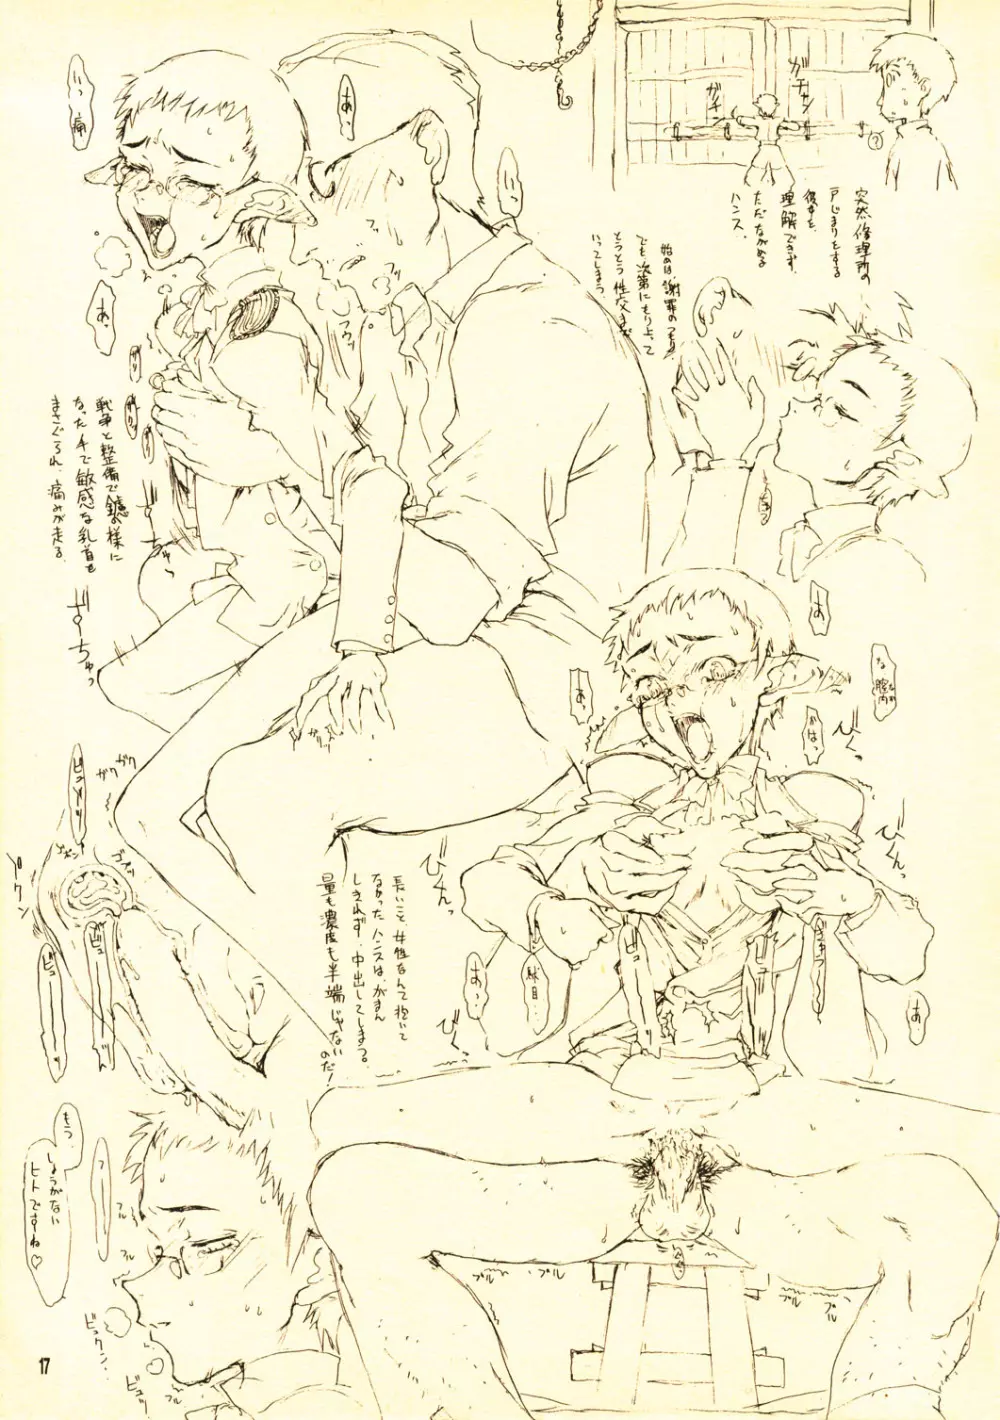 突然修理所の
戸じまりをする
彼女を、
理解できず
ただながめる
ハンス。
ガチャン
ガチ
?
始めは、謝罪のつもり
でも、次第にもり上って
とうとう性交まで
いってしまう。
いっ
痛
あ、
あ、
いっ
フゥッ
戦争と整備で鑢の様に
なった手で敏感な乳首を
まさぐられ、痛みが走る。
ずーちゅっ
ずーちゅっ
あ
あっ
な
膣内
かはっ
びくっ
びくんっ
びくんっ
びくっ
あ、
駄目…
あ
長いこと、女性なんて抱いて
なかったハンスは、がまん
しきれず、中出ししてしまう。
量も濃度も半端じゃない
のだ！
ガクガク
パクン
ビューーーッ
ビューーーッ
もう、
しょうがない
ヒトですね♡
フル
フル
ビックン
ブルーー、ブル
ブル
ブル
17